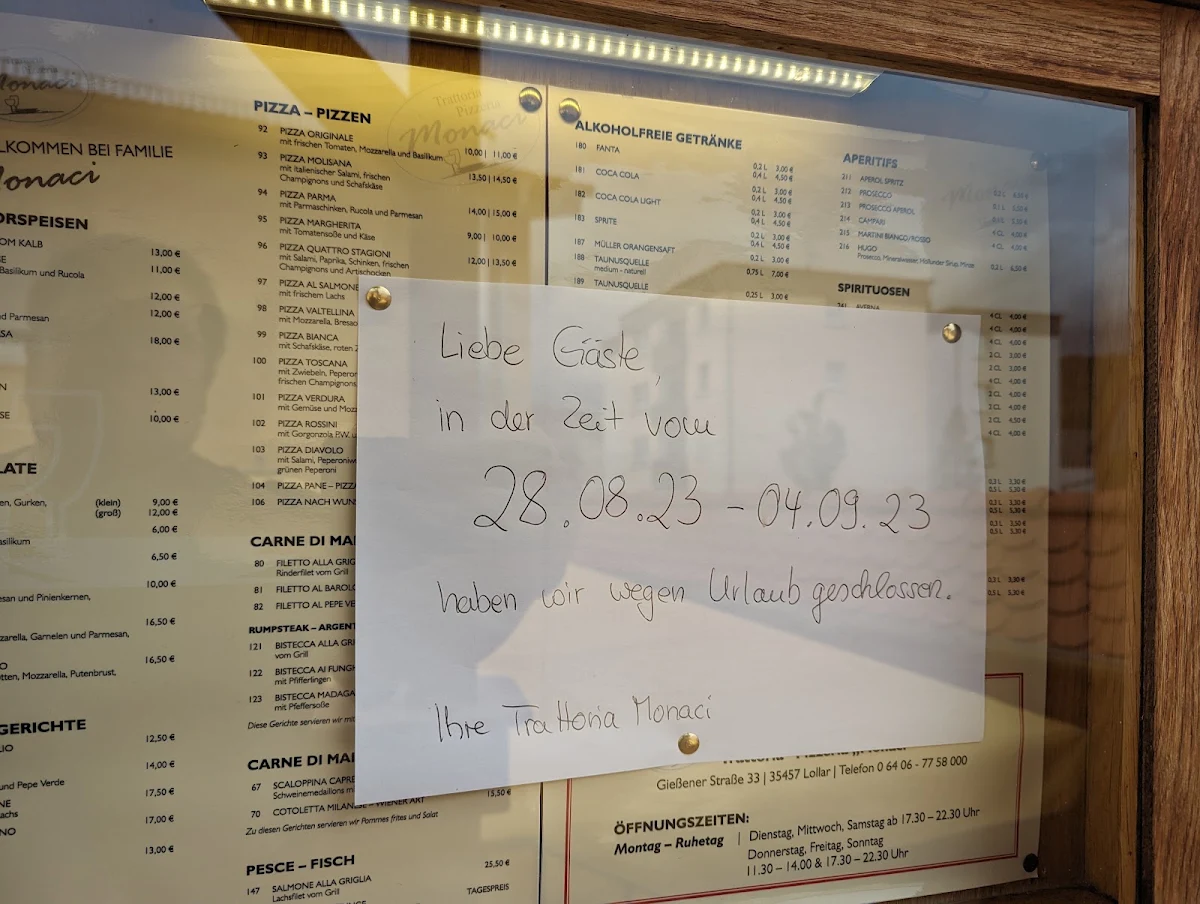 Monaci
LKOMMEN BEI FAMILIE
Monaci
ORSPEISEN
OM KALB
13,00 €
Basilikum und Rucola
11,00 €
12,00 €
d Parmesan
12,00 €
SA
18,00 €
13,00 €
10,00 €
LATE
en, Gurken,
(klein) 9,00 €
(groß) 12,00 €
6,00 €
asilikum
6,50 €
10,00 €
esan und Pinienkernen,
16,50 €
zarella, Garnelen und Parmesan,
16,50 €
tten, Mozzarella, Putenbrust,
GERICHTE
12,50 €
LIO
14,00 €
und Pepe Verde
17,50 €
NE
achs
17,00 €
NO
13,00 €
Trattoria
Pizzeria
Monaci
PIZZA – PIZZEN
92 PIZZA ORIGINALE
mit frischen Tomaten, Mozzarella und Basilikum 10,00 | 11,00 €
93 PIZZA MOLISANA
mit italienischer Salami, frischen 13,50 | 14,50 €
Champignons und Schafskäse
94 PIZZA PARMA
mit Parmaschinken, Rucola und Parmesan 14,00 | 15,00 €
95 PIZZA MARGHERITA
mit Tomatensoße und Käse 9,00 | 10,00 €
96 PIZZA QUATTRO STAGIONI
mit Salami, Paprika, Schinken, frischen 12,00 | 13,50 €
Champignons und Artischocken
97 PIZZA AL SALMONE
mit frischem Lachs
98 PIZZA VALTELLINA
mit Mozzarella, Bresao
99 PIZZA BIANCA
mit Schafskäse, roten Z
100 PIZZA TOSCANA
mit Zwiebeln, Peperon
frischen Champignons
101 PIZZA VERDURA
mit Gemüse und Moz
102 PIZZA ROSSINI
mit Gorgonzola P.W. u
103 PIZZA DIAVOLO
mit Salami, Peperoniw
grünen Peperoni
104 PIZZA PANE – PIZZ
106 PIZZA NACH WUN
CARNE DI MA
80 FILETTO ALLA GRIG
Rinderfilet vom Grill
81 FILETTO AL BAROL
82 FILETTO AL PEPE VE
RUMPSTEAK – ARGENT
121 BISTECCA ALLA GR
vom Grill
122 BISTECCA AI FUNGH
mit Pfifferlingen
123 BISTECCA MADAGA
mit Pfeffersoße
Diese Gerichte servieren wir mit
CARNE DI MA
67 SCALOPPINA CAPRE
Schweinemedaillons m 15,50 €
70 COTOLETTA MILANESE – WIENER ART
Zu diesen Gerichten servieren wir Pommes frites und Salat
PESCE – FISCH
25,50 €
147 SALMONE ALLA GRIGLIA
Lachsfilet vom Grill TAGESPREIS
ALKOHOLFREIE GETRÄNKE
180 FANTA
0,2 L 3,00 €
0,4 L 4,50 €
181 COCA COLA
0,2 L 3,00 €
0,4 L 4,50 €
182 COCA COLA LIGHT
0,2 L 3,00 €
0,4 L 4,50 €
183 SPRITE
0,2 L 3,00 €
0,4 L 4,50 €
187 MÜLLER ORANGENSAFT
0,2 L 3,00 €
188 TAUNUSQUELLE
medium - naturell 0,75 L 7,00 €
189 TAUNUSQUELLE
0,25 L 3,00 €
APERITIFS
211 APEROL SPRITZ
212 PROSECCO
213 PROSECCO APEROL
214 CAMPARI
215 MARTINI BIANCO/ROSSO
216 HUGO
Prosecco, Mineralwasser, Holunder Sirup, Minze
SPIRITUOSEN
Liebe Gäste,
in der Zeit vom
28.08.23 - 04.09.23
haben wir wegen Urlaub geschlossen.
Ihre Trattoria Monaci
Gießener Straße 33 | 35457 Lollar | Telefon 0 64 06 - 77 58 000
ÖFFNUNGSZEITEN:
Montag – Ruhetag | Dienstag, Mittwoch, Samstag ab 17.30 – 22.30 Uhr
Donnerstag, Freitag, Sonntag
11.30 – 14.00 & 17.30 – 22.30 Uhr